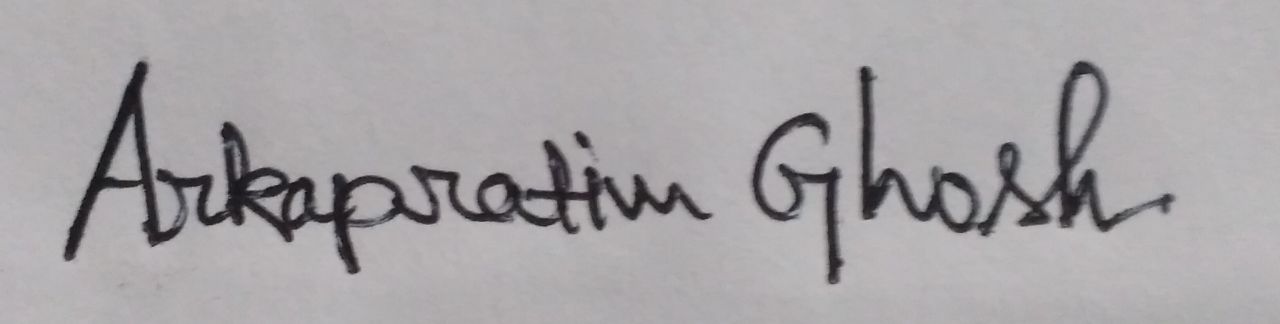 Arkapratim Ghosh